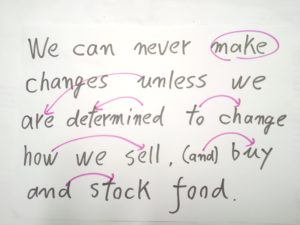 We can never make
changes unless we
are determined to change
how we sell, (and) buy
and stock food.